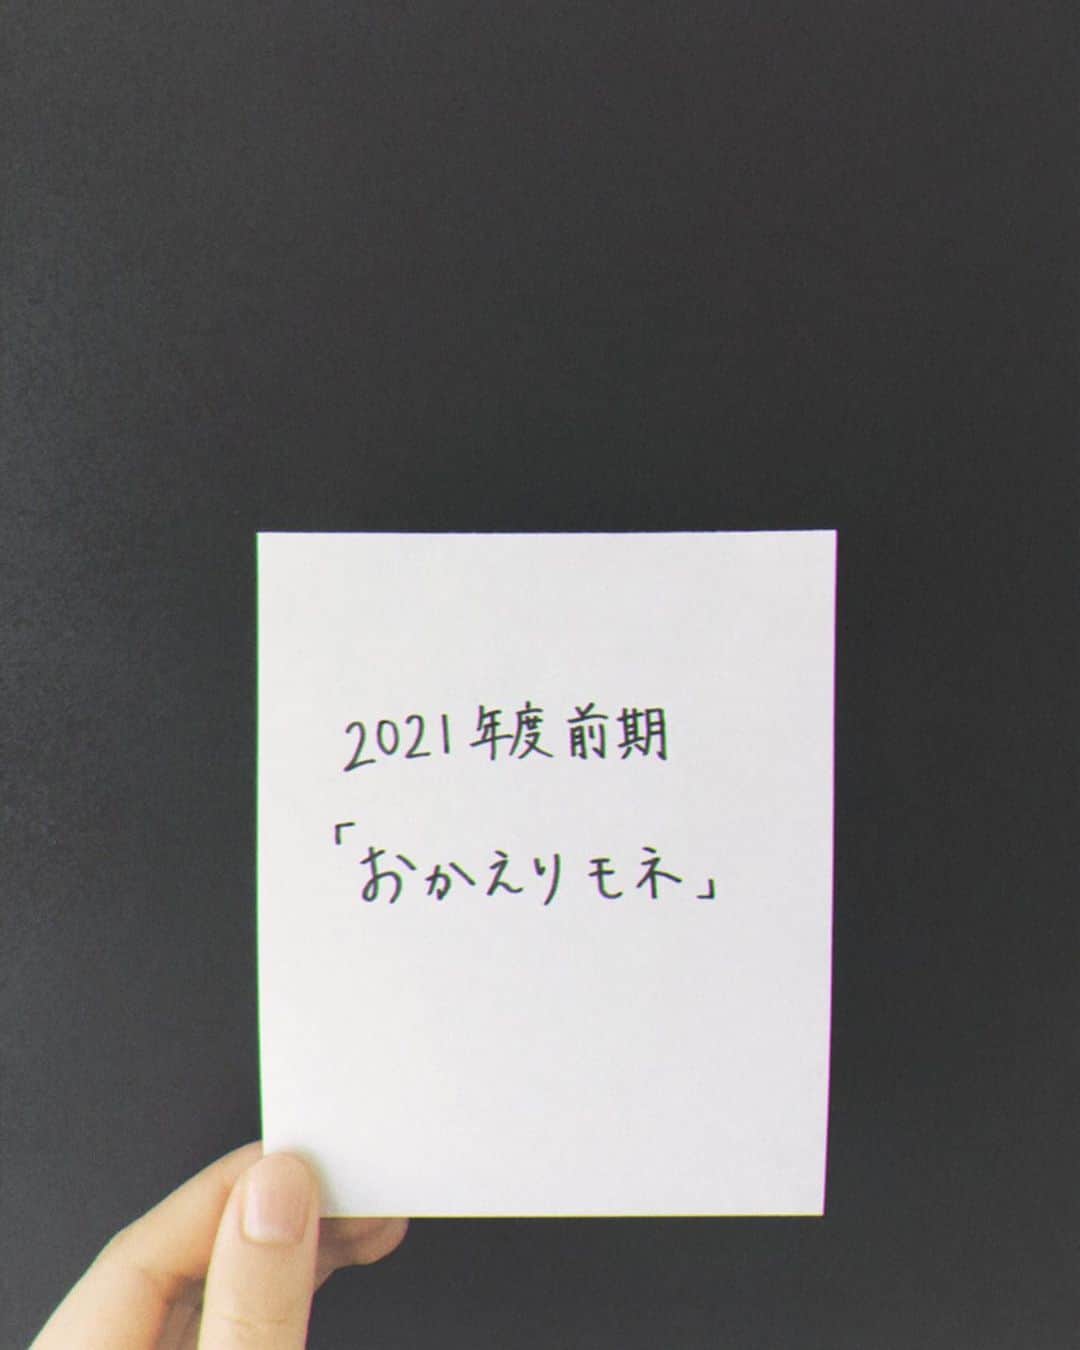 2021年度前期
「おかえりモネ」